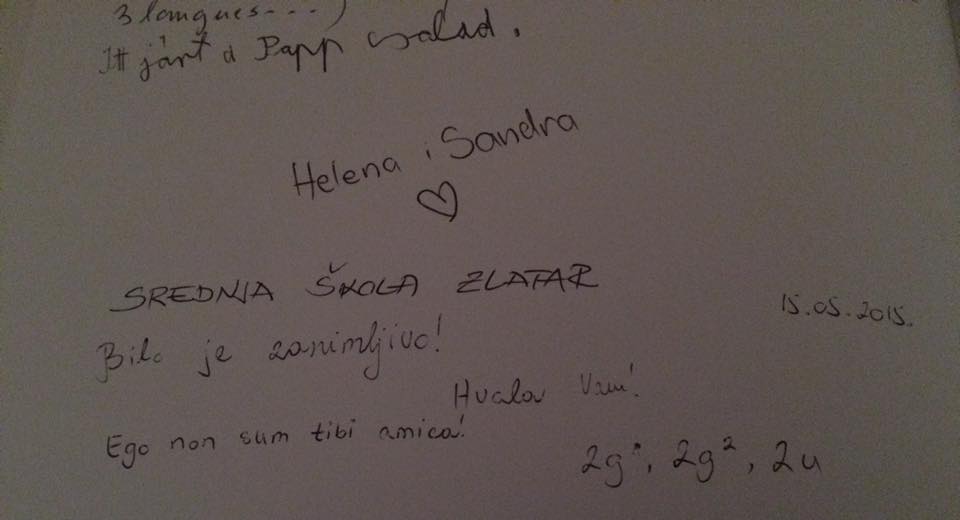 3 langues...)
Itt járt a Papp család.
Helena i Sandra
SREDNJA ŠKOLA ZLATAR
15.05.2015.
Bilo je zanimljivo!
Hvala Vam!
Ego non sum tibi amica!
2g¹, 2g², 2u